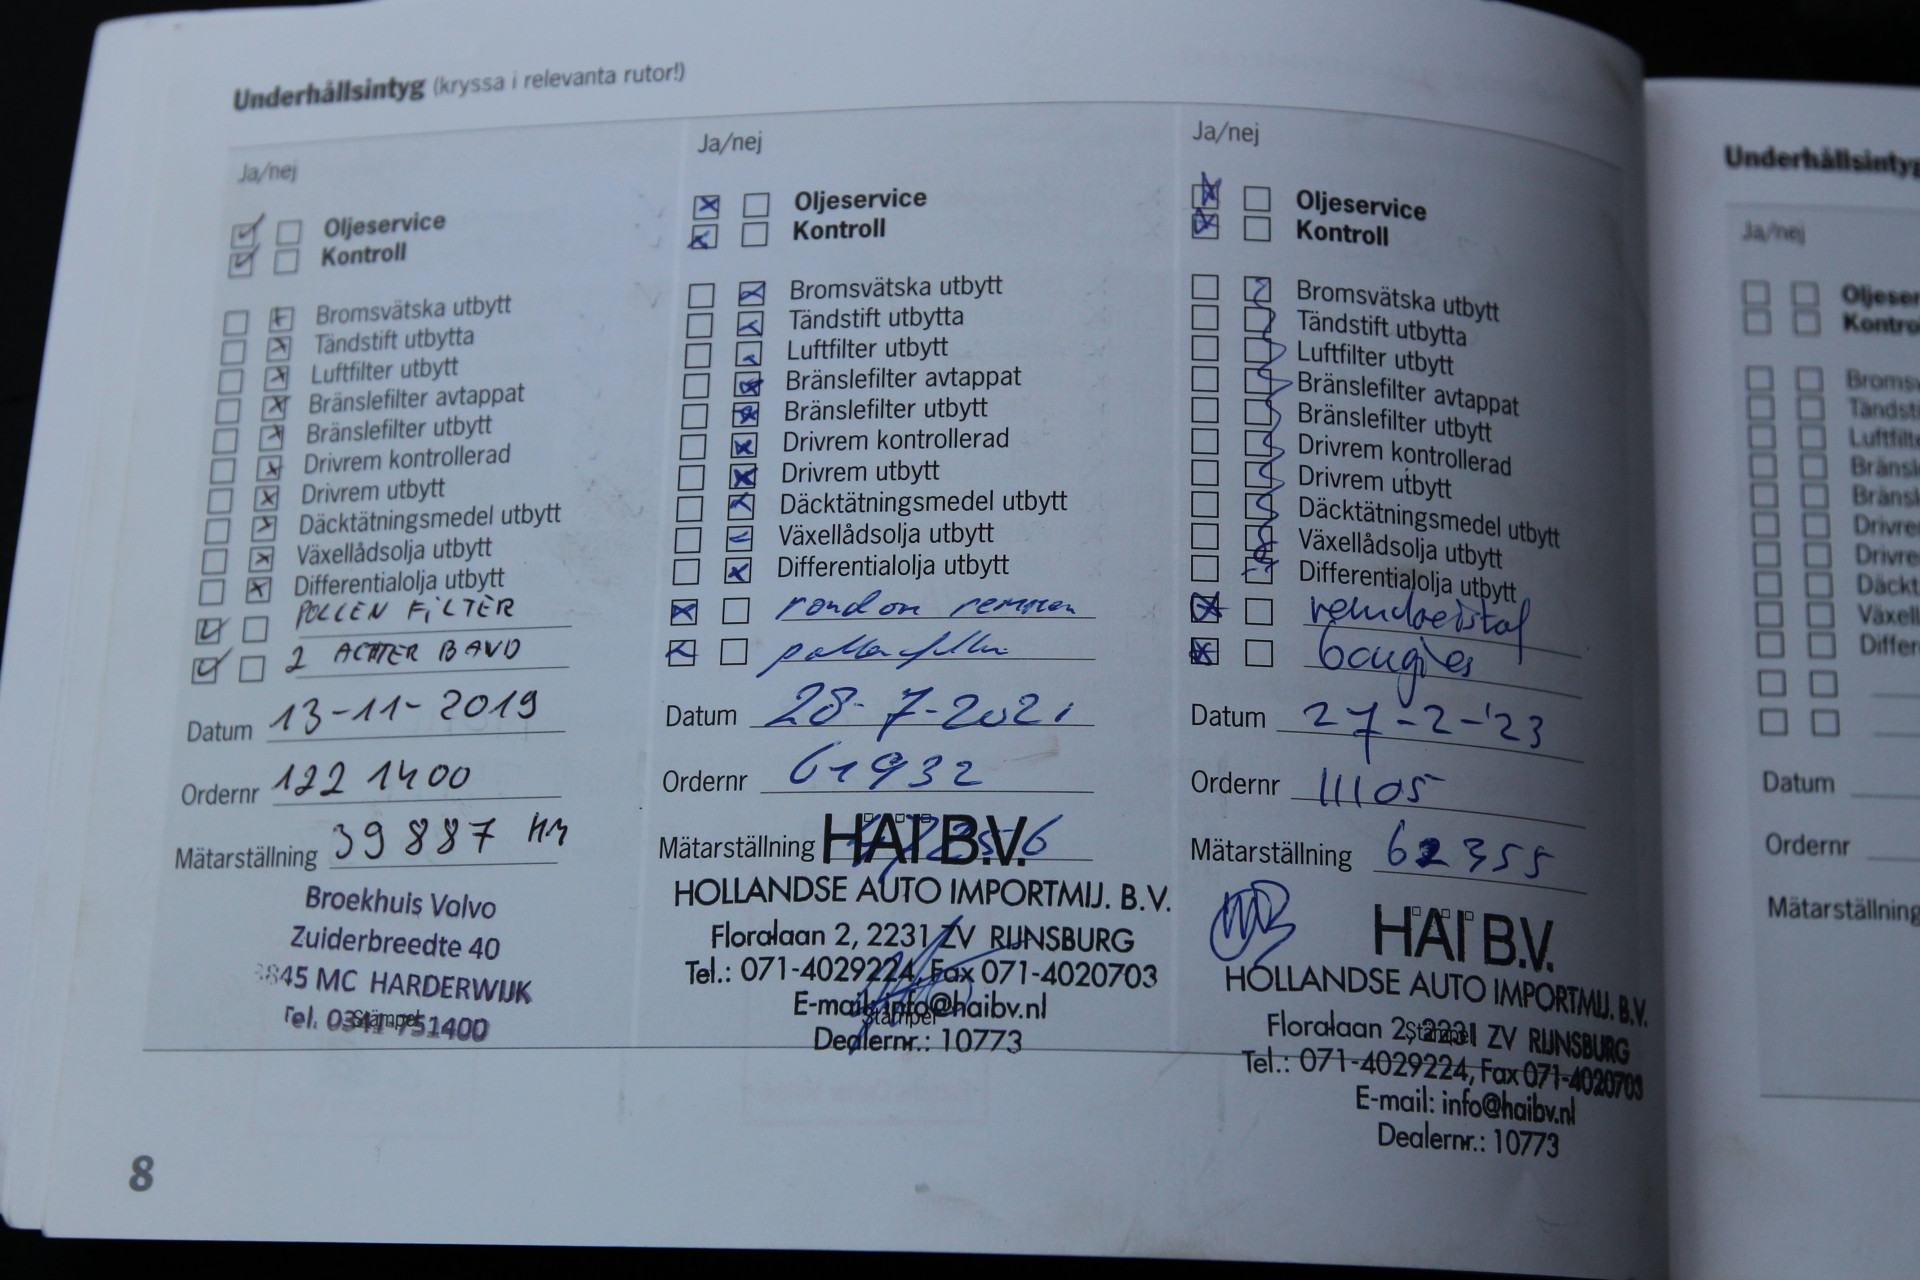 Underhållsintyg (kryssa i relevanta rutor!)
Ja/nej
Oljeservice
Kontroll
Bromsvätska utbytt
Tändstift utbytta
Luftfilter utbytt
Bränslefilter avtappat
Bränslefilter utbytt
Drivrem kontrollerad
Drivrem utbytt
Däcktätningsmedel utbytt
Växellådsolja utbytt
Differentialolja utbytt
POLLEN FILTER
2 ACHTER BAND
Datum 13-11-2019
Ordernr 122 1400
Mätarställning 39 887 KM
Broekhuis Volvo
Zuiderbreedte 40
3845 MC HARDERWIJK
Tel. 0341-751400
Stämpel
Ja/nej
Oljeservice
Kontroll
Bromsvätska utbytt
Tändstift utbytta
Luftfilter utbytt
Bränslefilter avtappat
Bränslefilter utbytt
Drivrem kontrollerad
Drivrem utbytt
Däcktätningsmedel utbytt
Växellådsolja utbytt
Differentialolja utbytt
rondom remmen
pollenfilter
Datum 28-7-2021
Ordernr 61932
Mätarställning
HAI B.V.
HOLLANDSE AUTO IMPORTMIJ. B.V.
Floralaan 2, 2231 ZV RIJNSBURG
Tel.: 071-4029224, Fax 071-4020703
E-mail: info@haibv.nl
Stämpel
Dealernr.: 10773
Ja/nej
Oljeservice
Kontroll
Bromsvätska utbytt
Tändstift utbytta
Luftfilter utbytt
Bränslefilter avtappat
Bränslefilter utbytt
Drivrem kontrollerad
Drivrem utbytt
Däcktätningsmedel utbytt
Växellådsolja utbytt
Differentialolja utbytt
remvloeistof
bougies
Datum 27-2-'23
Ordernr 11105
Mätarställning 62355
HAI B.V.
HOLLANDSE AUTO IMPORTMIJ. B.V.
Floralaan 2, 2231 ZV RIJNSBURG
Stämpel
Tel.: 071-4029224, Fax 071-4020703
E-mail: info@haibv.nl
Dealernr.: 10773
8
Underhållsintyg
Ja/nej
Datum
Ordernr
Mätarställning